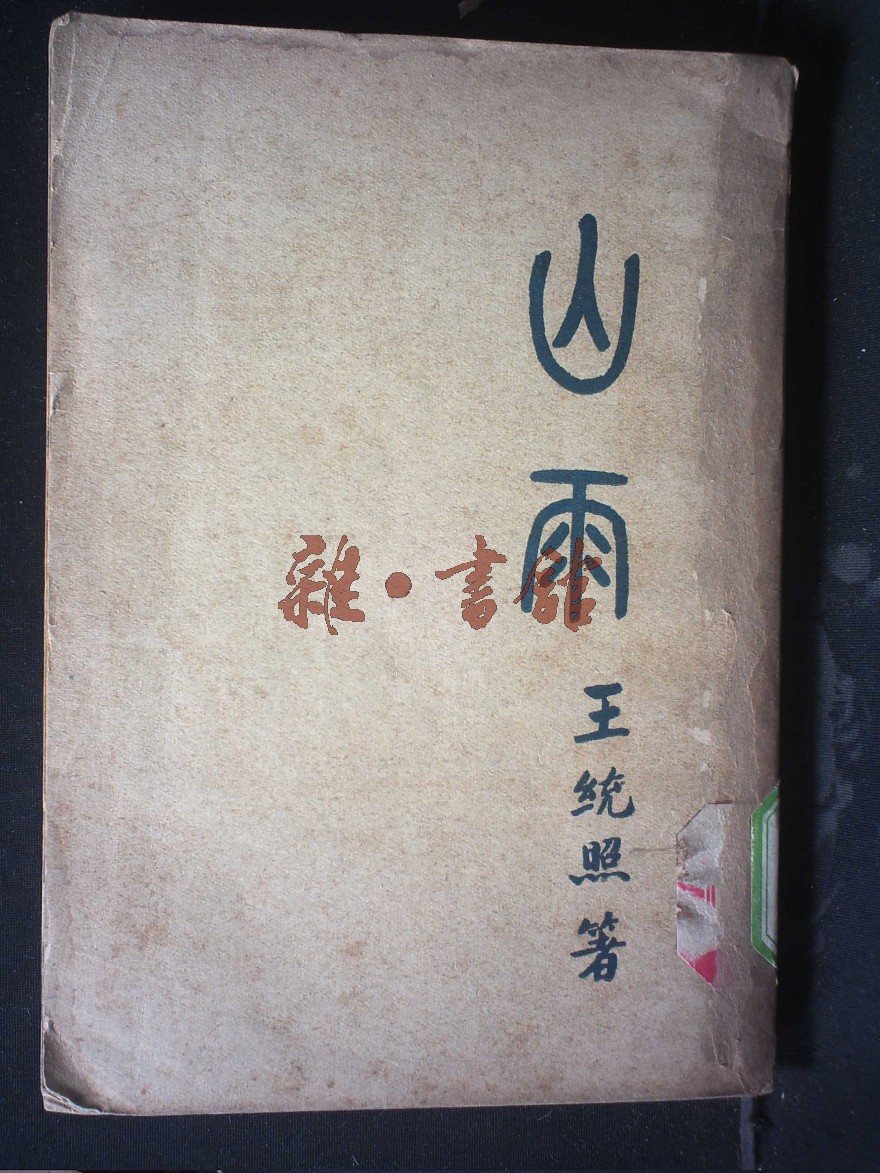 山雨
王統照著
雜·書館